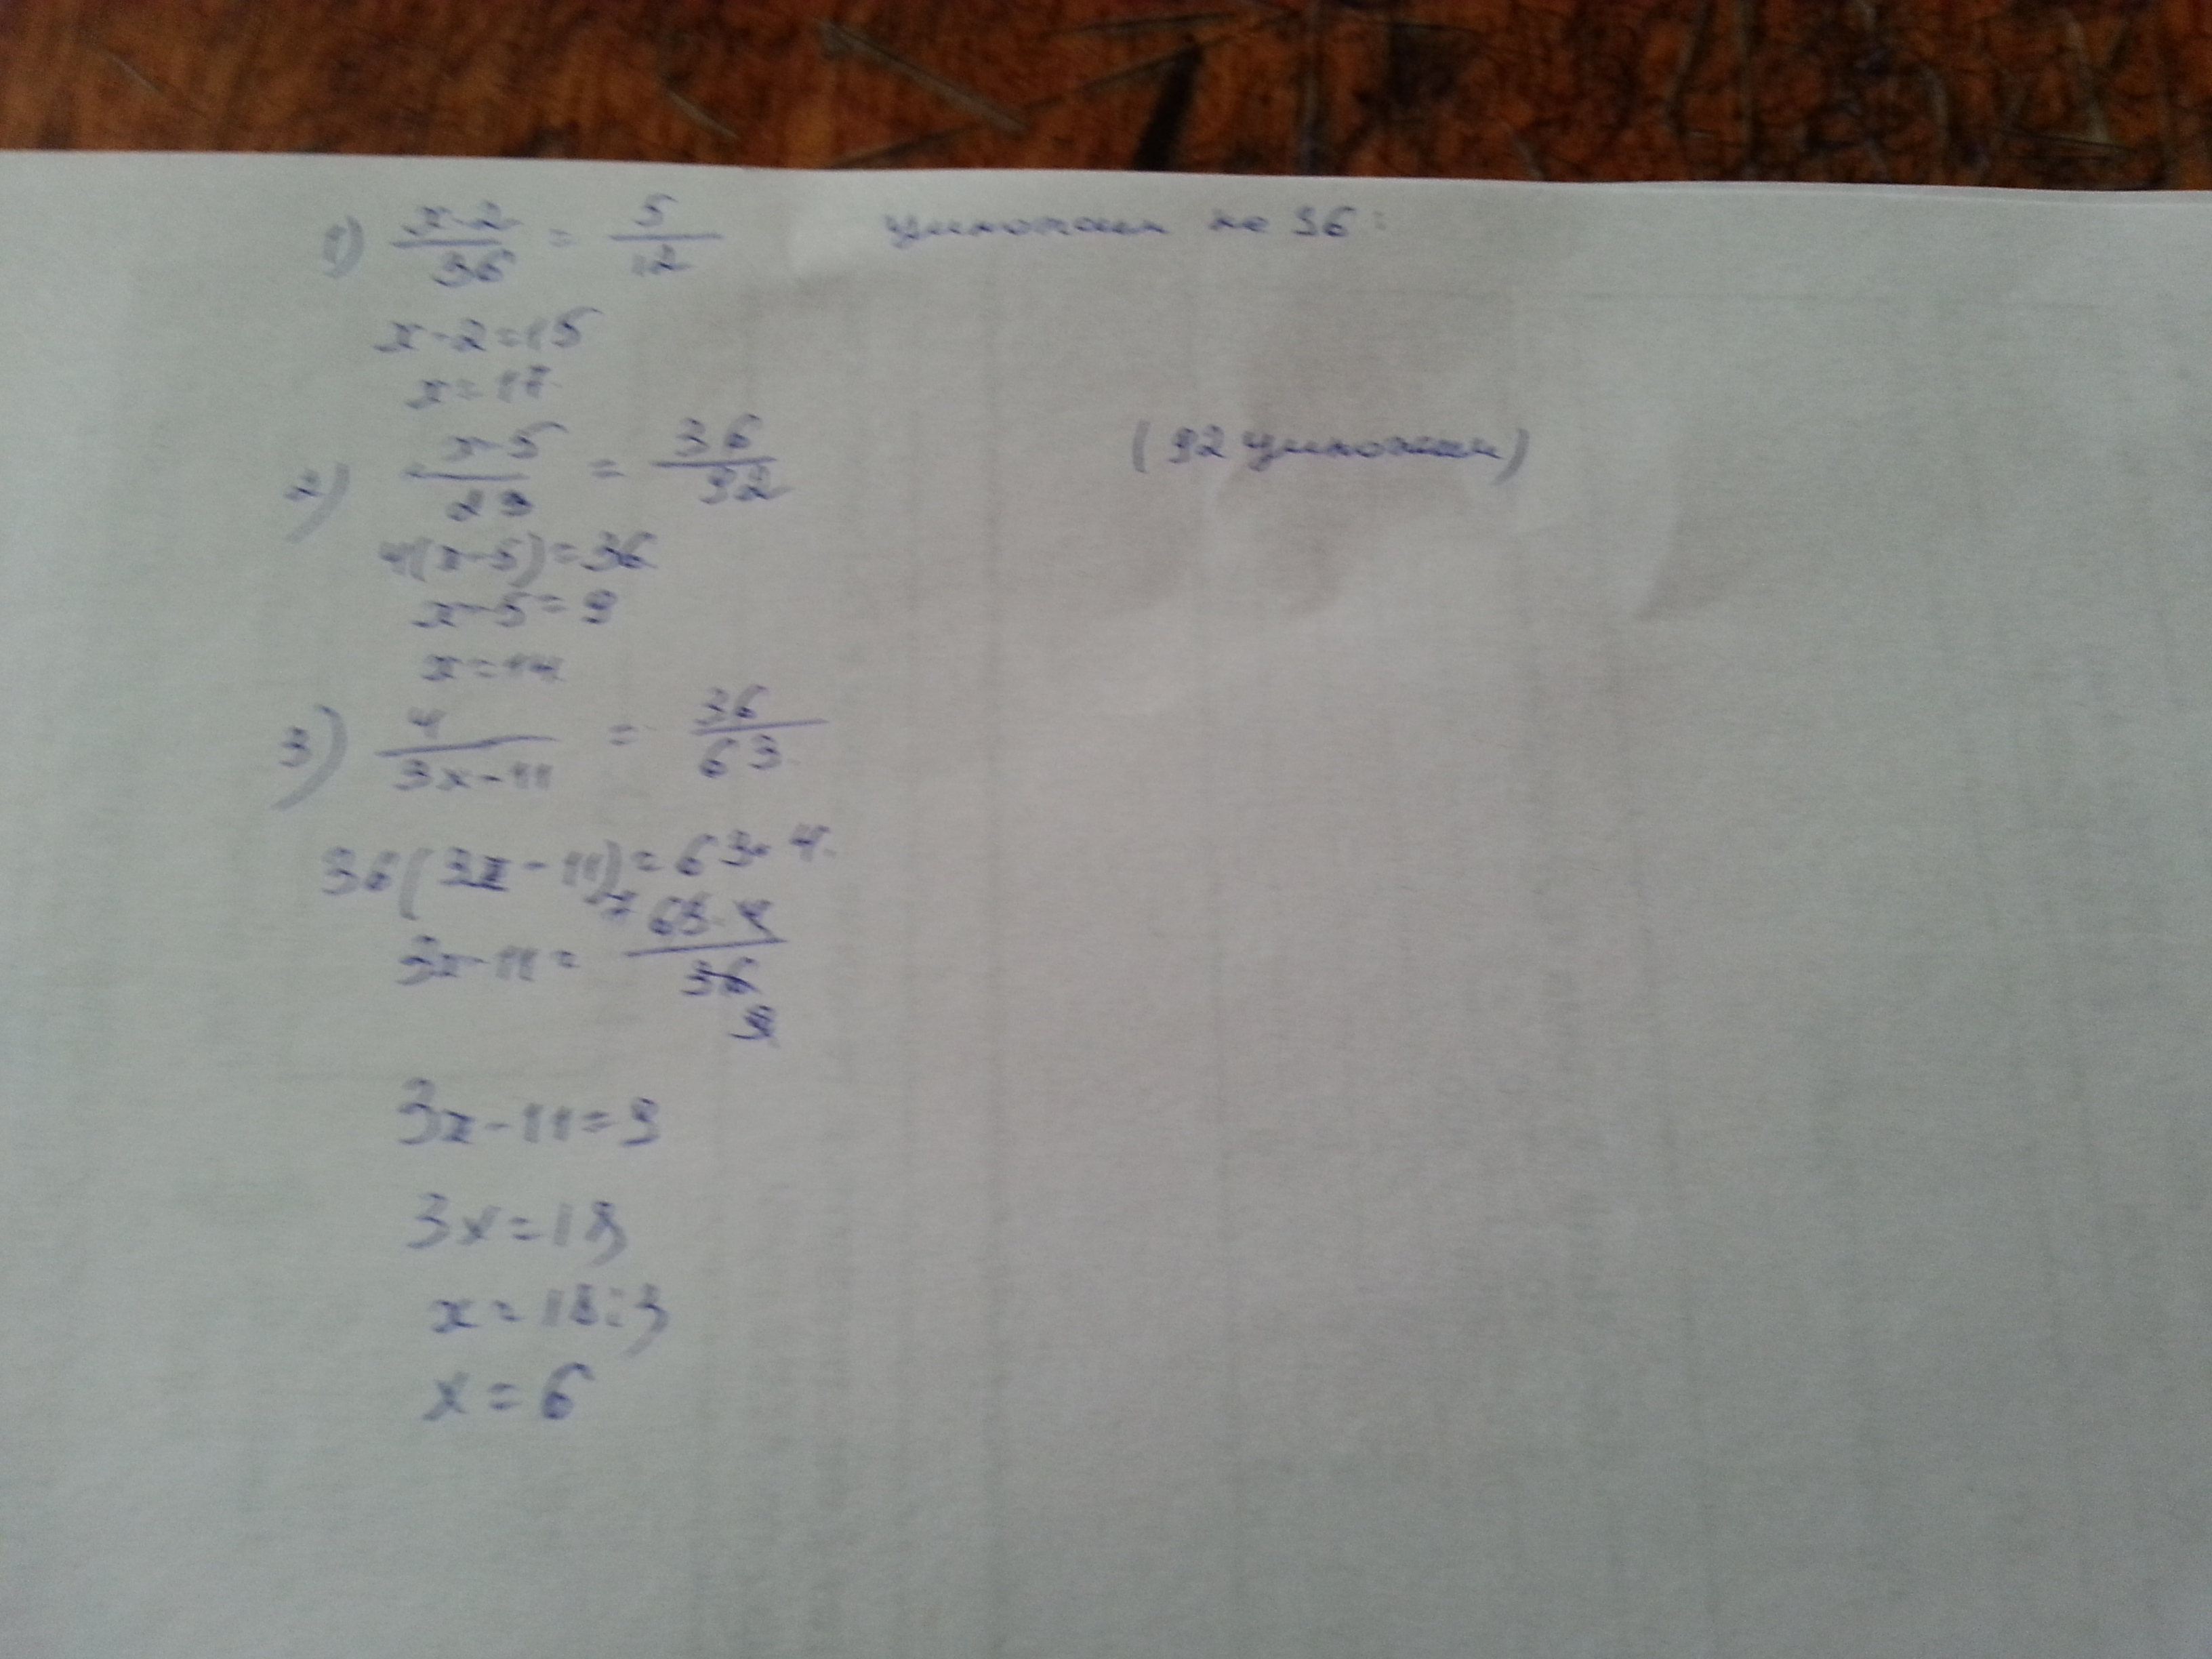 1) x-2/36 = 5/12 умножаем на 36:
x-2=15
x=17
2) x-5/23 = 36/92 (92 умножаем)
4(x-5)=36
x-5=9
x=14
3) 4/3x-11 = 36/63
36(3x-11)=63·4
3x-11= 7 63·4/36 9
3x-11=9
3x=18
x=18:3
x=6